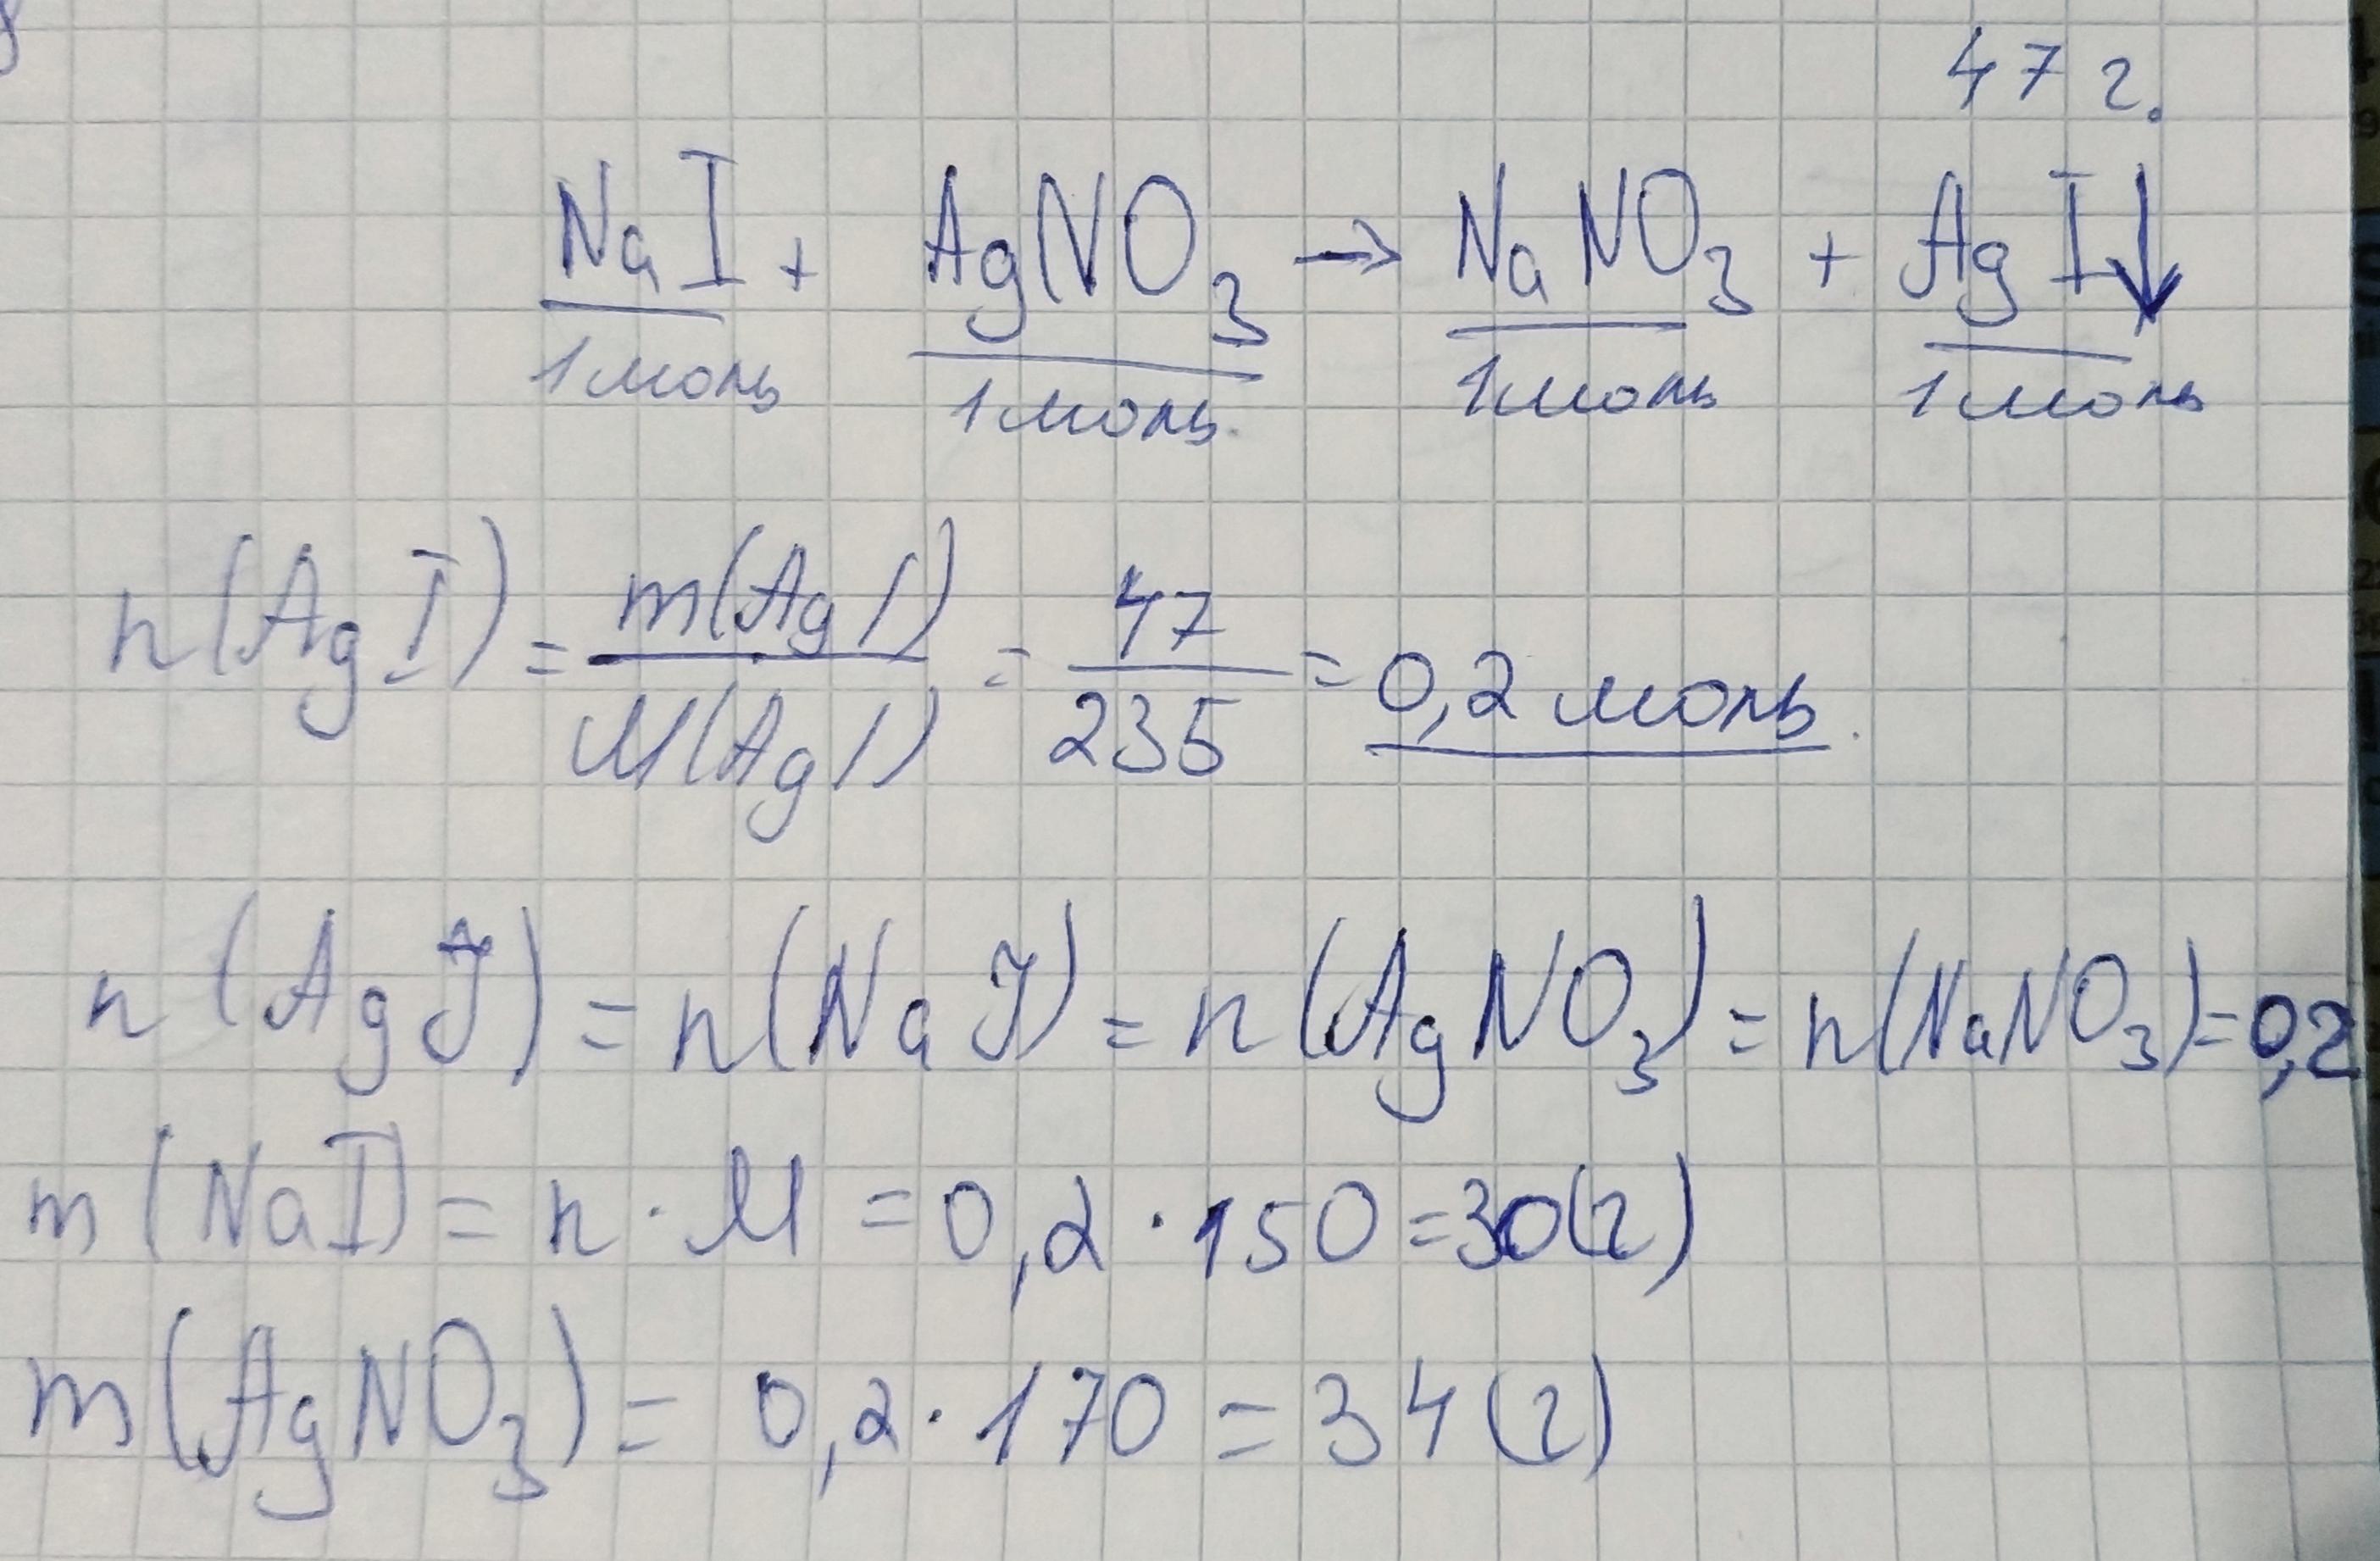 47 г.
NaI + AgNO₃ → NaNO₃ + AgI↓
1 моль 1 моль. 1 моль 1 моль
n(AgI) = m(AgI)/M(AgI) = 47/235 = 0,2 моль.
n(AgJ) = n(NaJ) = n(AgNO₃) = n(NaNO₃) = 0,2
m(NaI) = n · M = 0,2 · 150 = 30(г)
m(AgNO₃) = 0,2 · 170 = 34(г)